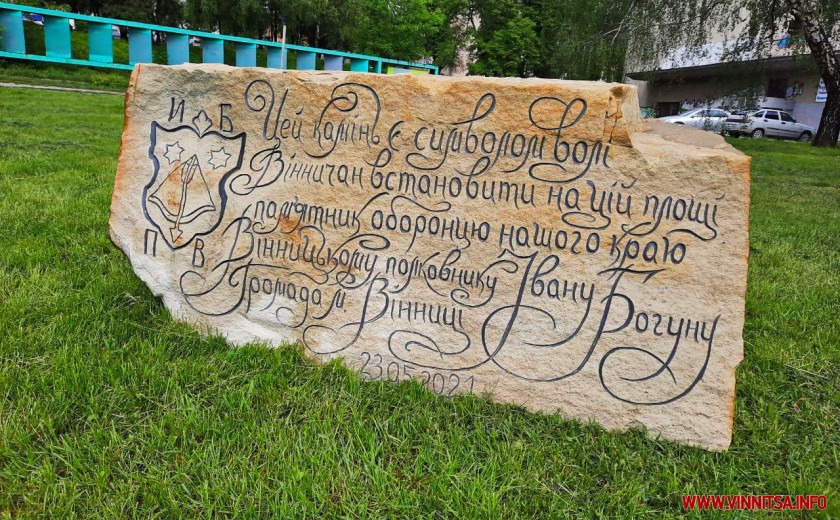 И Б
П В
Цей камінь є символом волі
Вінничан встановити на цій площі
пам'ятник оборонцю нашого краю
Вінницькому полковнику Івану Богуну
Громада м. Вінниці
23.05.2021
WWW.VINNITSA.INFO